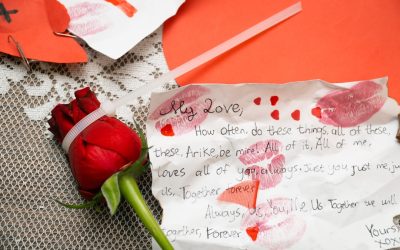 My Love,
How often, do these things, all of these,
these, Arike, be mine! All of it, All of me,
loves all of you, always. Just you just me, ju
us, Together forever
Always, us, You, Me Us Together we will
together, Forever
Yours
xoxo